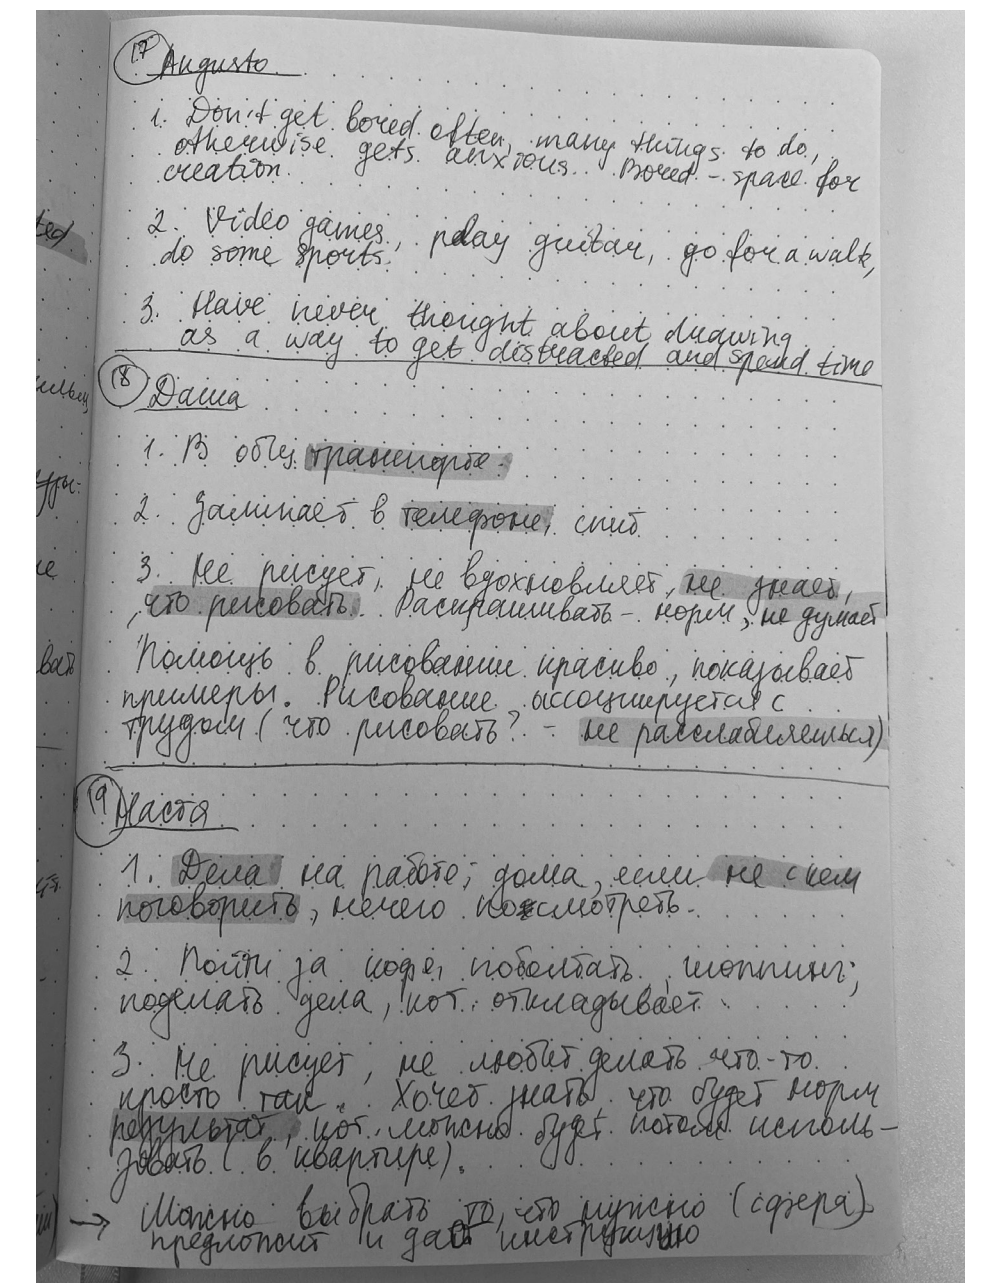 17 Augusto
1. Don't get bored often, many things to do,
otherwise gets anxious. Bored - space for
creation.
2. Video games, play guitar, go for a walk,
do some sports.
3. Have never thought about drawing
as a way to get distracted and spend time
18 Даша
1. В общ транспорте.
2. Залипает в телефоне, спит
3. Не рисует, не вдохновляет, не знает,
что рисовать. Раскрашивать - норм, не думает
Помощь в рисовании красиво, показывает
примеры. Рисование ассоциируется с
трудом (что рисовать? - не расслабляешься)
19 Настя
1. Дела на работе; дома, если не с кем
поговорить, нечего посмотреть.
2. Пойти за кофе, поболтать, шоппинг;
поделать дела, кот. откладывает
3. Не рисует, не любит делать что-то
просто так. Хочет знать что будет норм
результат, кот. можно будет потом исполь-
зовать (в квартире).
→ Можно выбрать то, что нужно (сфера)
предложит и даст инструкцию
ted
вать